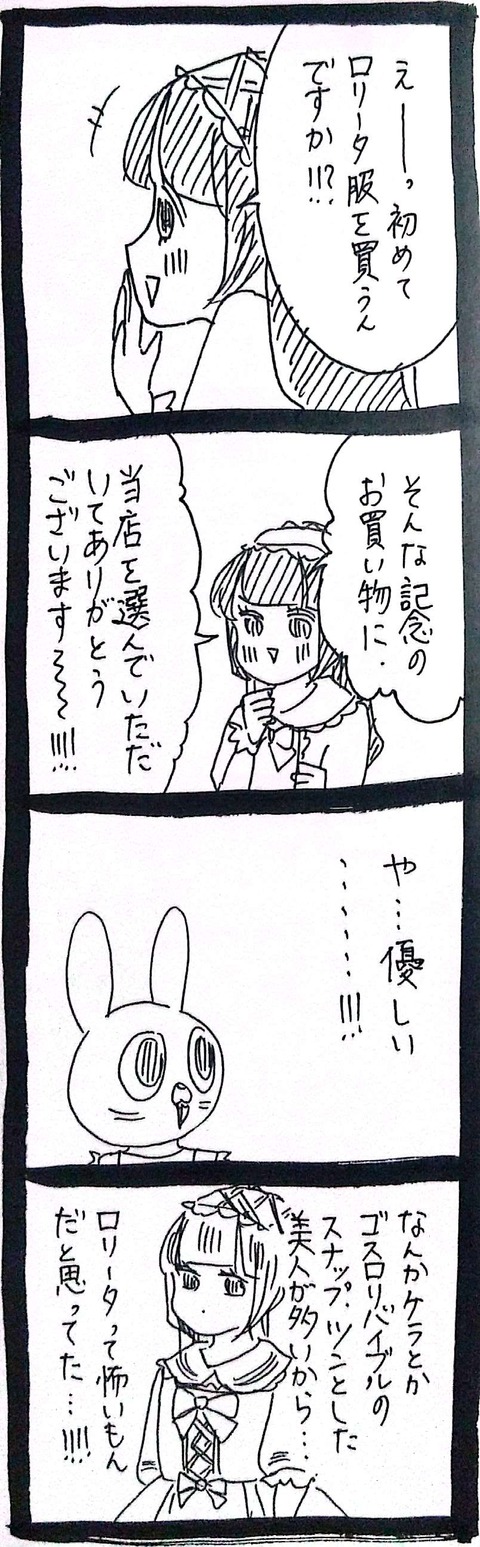 えーーっ初めて
ロリータ服を買うん
ですか!!?
そんな記念の
お買い物に.
当店を選んでいただ
いてありがとう
ございます〜〜〜!!!!
や…優しい
……!!!
なんかケラとか
ゴスロリバイブルの
スナップ、ツンとした
美人が多いから…
ロリータって怖いもん
だと思ってた…!!!!